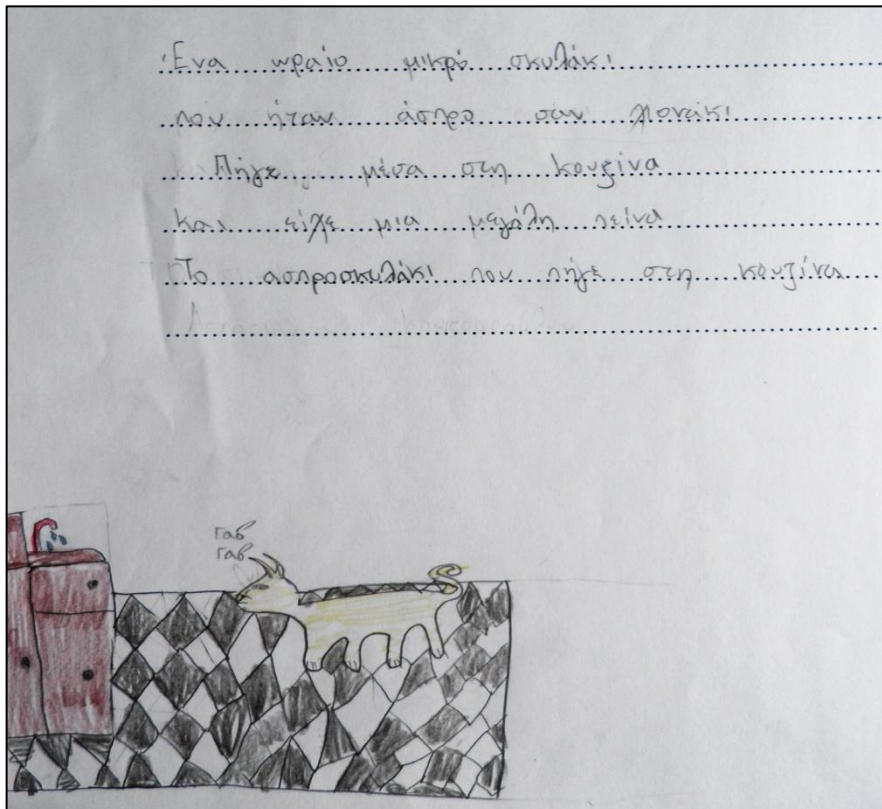 Ένα ωραίο μικρό σκυλάκι
που ήταν άσπρο σαν χιονάκι
Πήγε μέσα στη κουζίνα
και είχε μια μεγάλη πείνα
Το ασπροσκυλάκι που πήγε στη κουζίνα
γαβ
γαβ